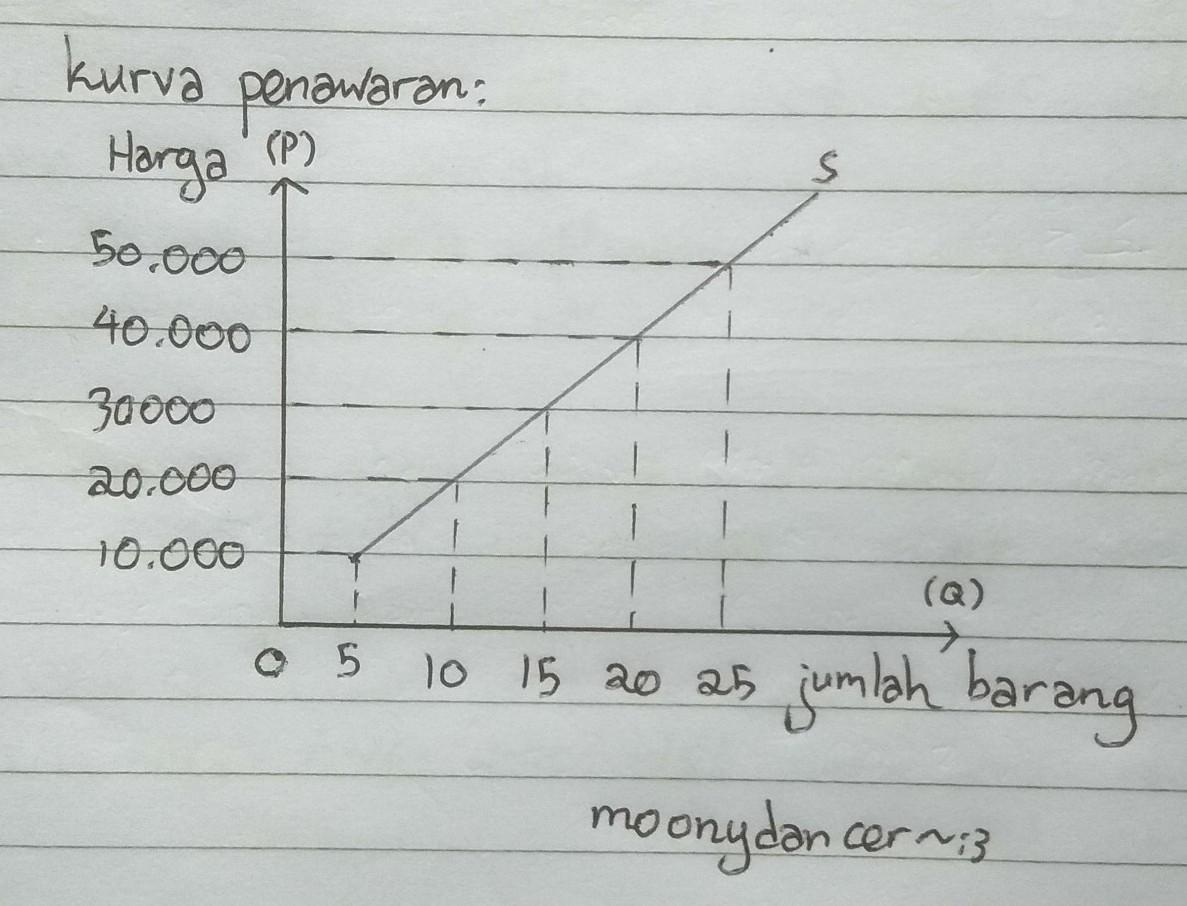 kurva penawaran:
Harga (P)
S
50.000
40.000
30000
20.000
10.000
(Q)
0 5 10 15 20 25 jumlah barang
moonydancer~:3